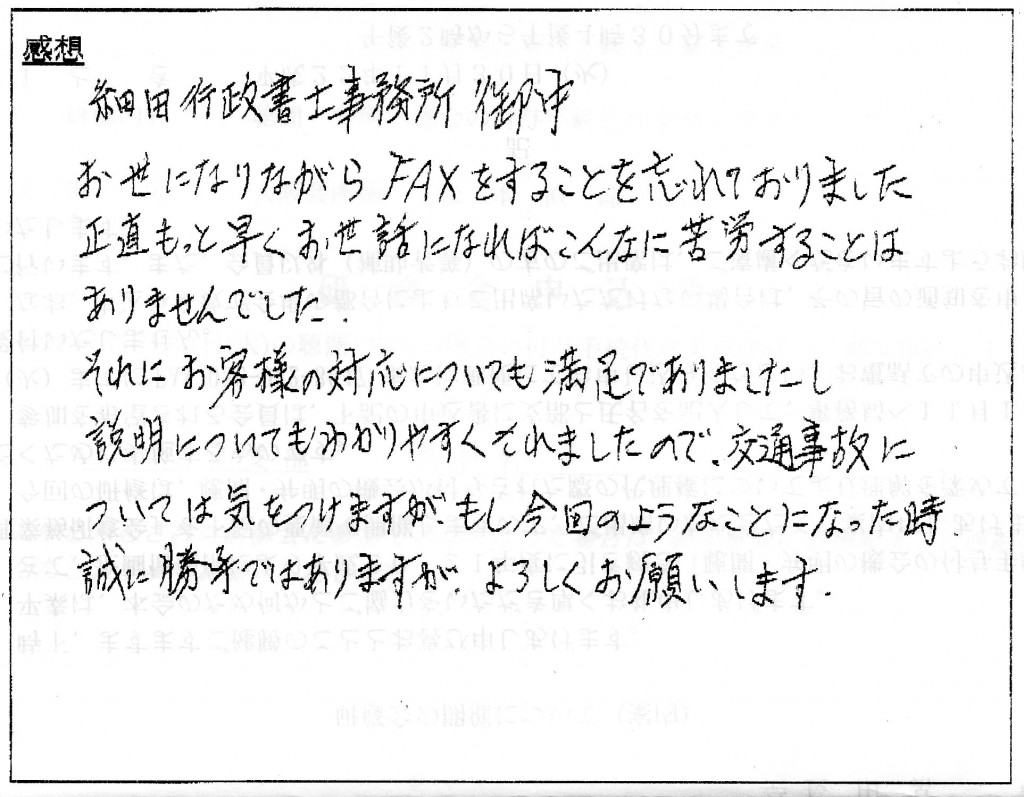 感想
細田行政書士事務所 御中
お世になりながら FAXをすることを忘れておりました
正直もっと早くお世話になればこんなに苦労することは
ありませんでした.
それにお客様の対応についても満足でありましたし
説明についてもわかりやすくそれましたので、交通事故に
ついては気をつけますが、もし、今回のようなことになった時
誠に勝手ではありますが、よろしくお願いします.